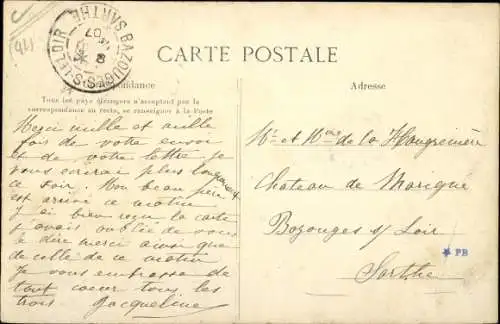 (421)
BAZOUGES-S-LE-LOIR
SARTHE
8
07
CARTE POSTALE
Correspondance
Tous les pays étrangers n'acceptent pas la
correspondance au recto, se renseigner à la Poste
Adresse
Merci mille et mille
fois de votre envoi
et de votre lettre je
vous écrirai plus longuement
ce soir. Mon beau père
est arrivé ce matin
J'ai bien reçu la carte
j'avais oublié de vous
le dire merci ainsi que
de celle de ce matin
Je vous embrasse de
tout coeur tous les
trois Jacqueline
Mr et Mme de la Haugrenière
Chateau de Marigné
Bazouges s/ Loir
Sarthe
PB